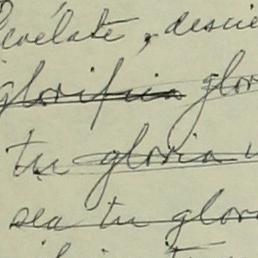 Revélate, descie
glorifica glor
tu gloria
sea tu glor